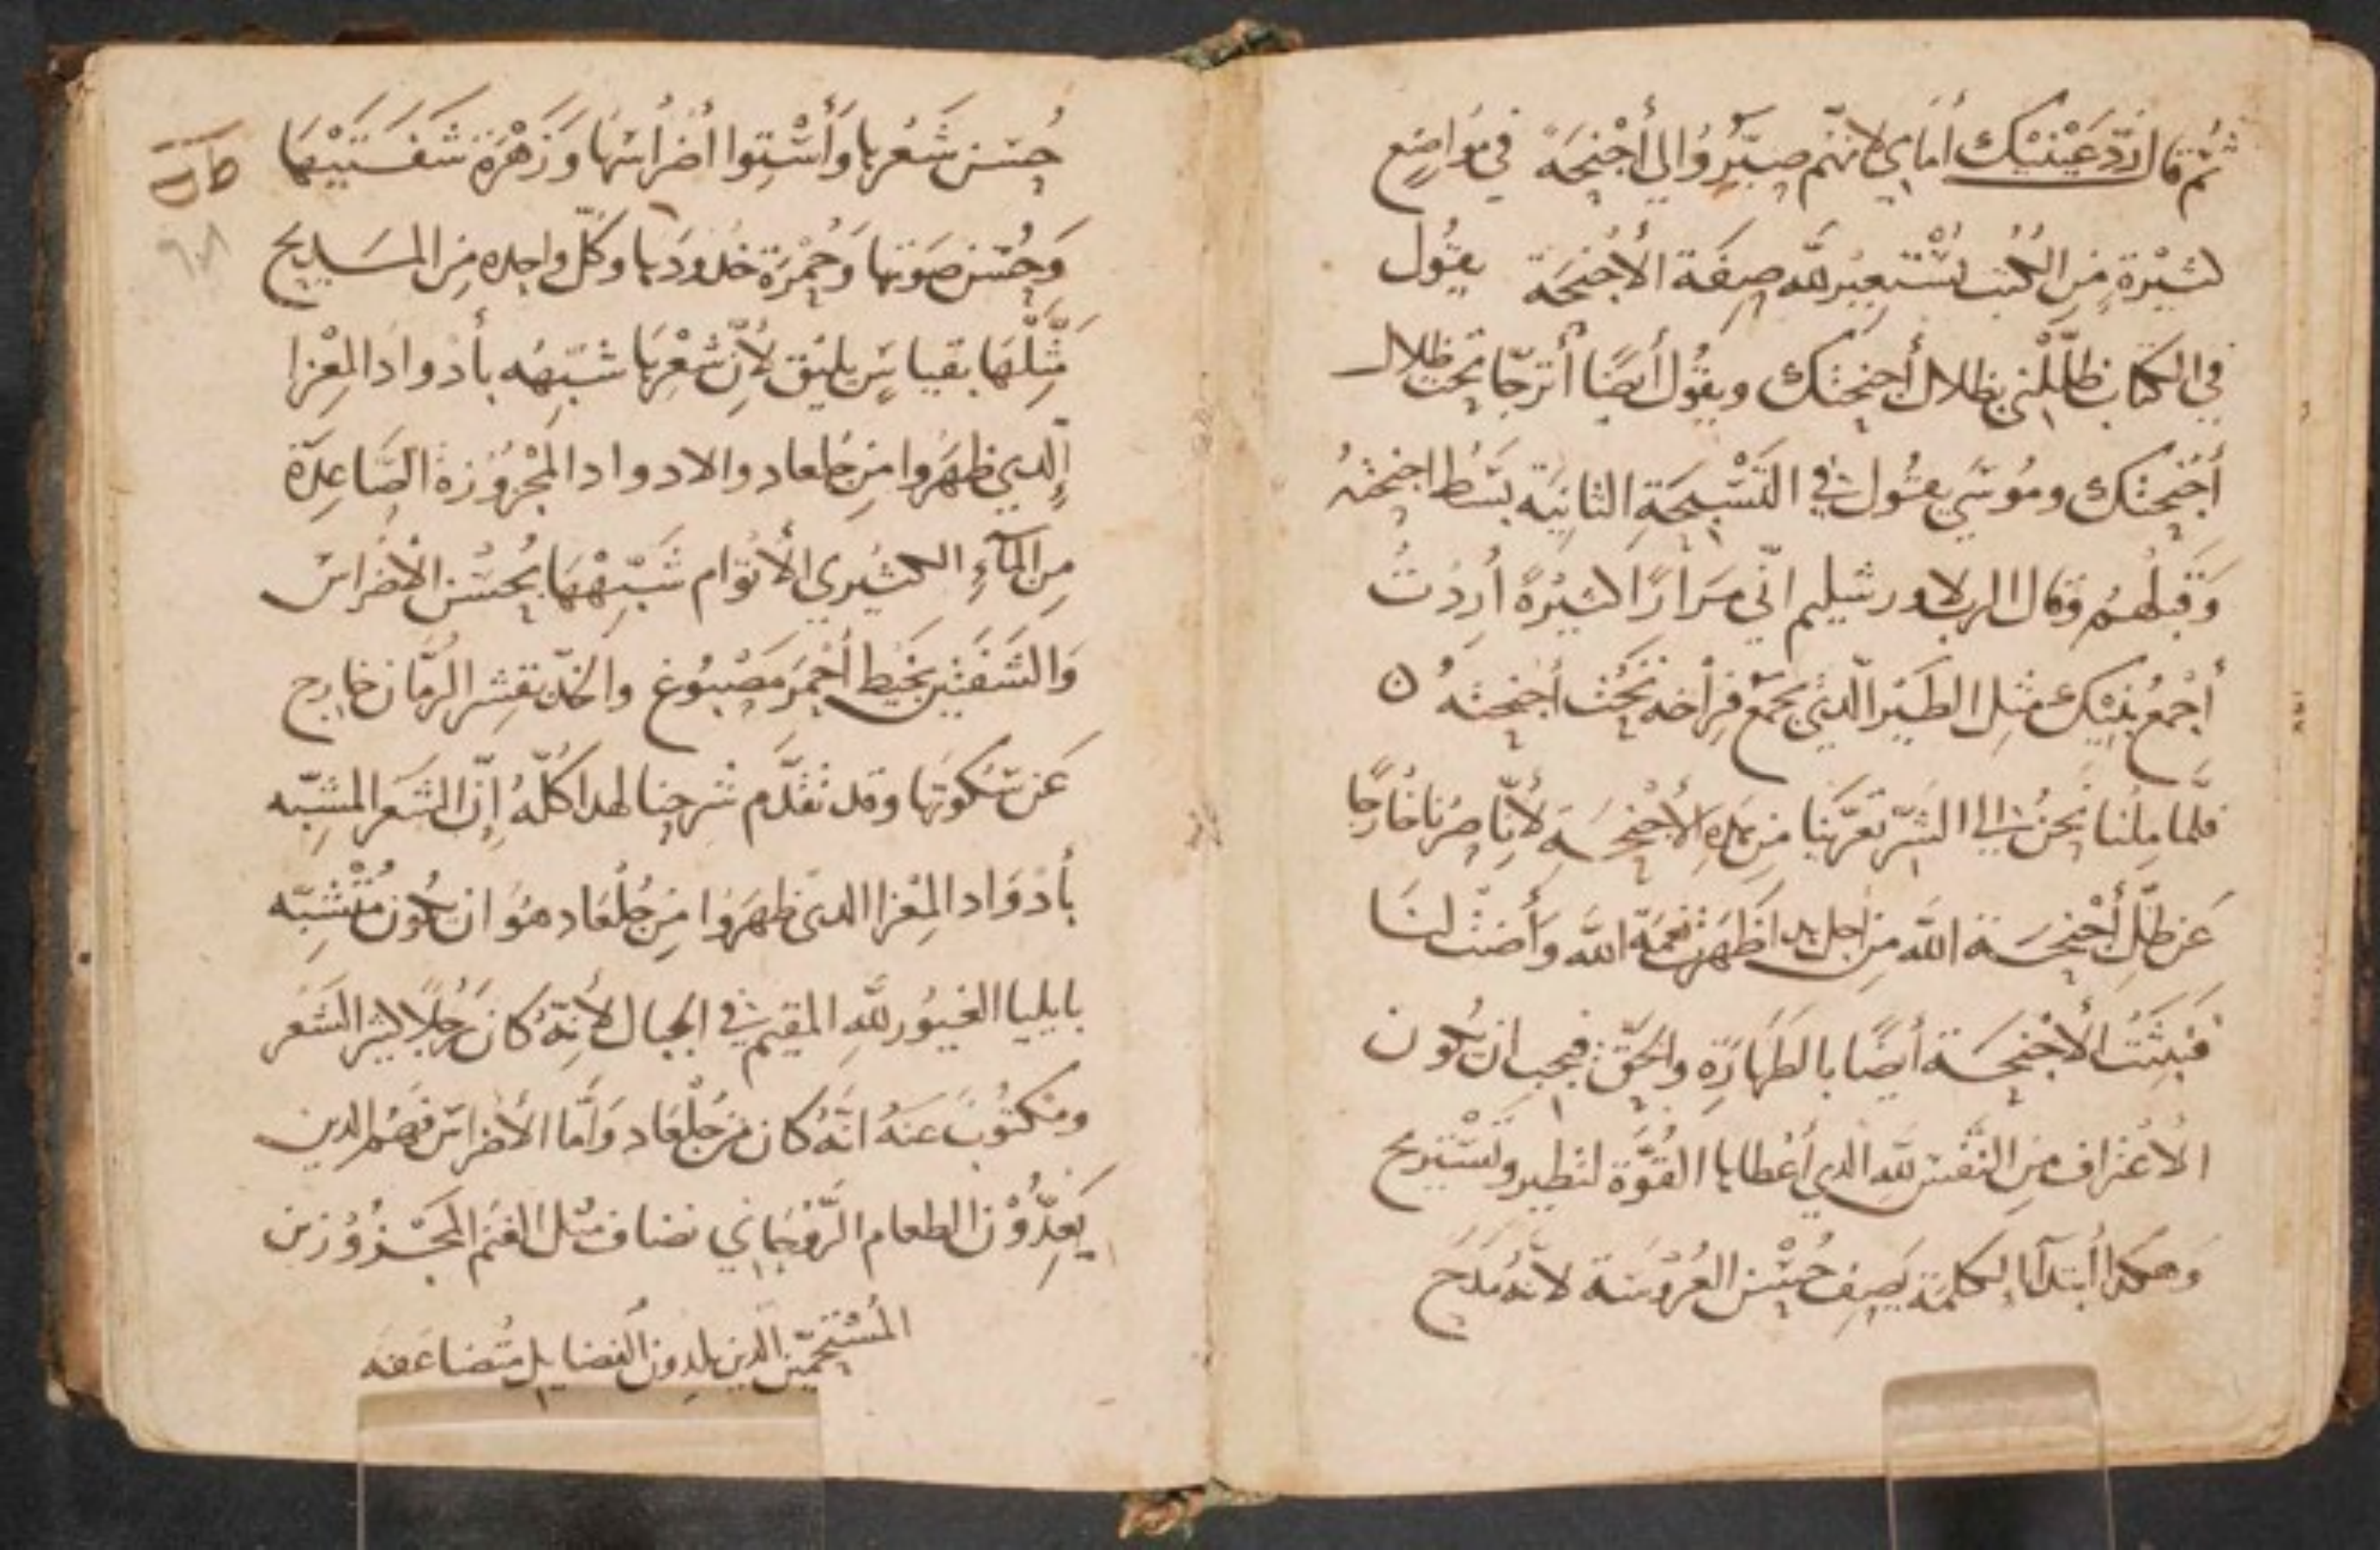 ثم قال رُدّي عَيْنَيْك أمامي لانهم صيّروا لي أجْنِحَة في مَواضِع
كثيرة مِن الكُتب تُسْتعير لله صِفَة الأجْنِحَة يقُول
في الكتاب ظلّلْني بظلال أجنحتك ويقُول أيضًا أترجّا تحت ظلال
أجْنِحَتك ومُوسَي يقُول في التَسْبِحَةِ الثانِيَة بَسَط اجنِحَتهُ
وَقَبلَهُم وقال الرب لاورشليم انّي مَرَارًا كثيْرةً أرَدْتُ
أجْمَعُ بَنِيْك مثل الطَيْر الّدي يَجْمَع فِراخه تَحْت أجنحته ن
فلّما مِلْنا نَحنُ الي الشرّ تعرَّينا من هَدِه الأجْنِحَة لأنّا صِرْنا خَارِجًا
عَن ظلّ أجْنِحَة الله مِن أجل هدا ظَهَرَت نعمَة الله وأضت لنَا
فَنبتَتْ الأجْنِحَة أيضًا بالطَهارَةِ والحَقّ فيجب ان تكون
الاعْتراف مِن النَفْس لله الدي أعْطاها القُوّة لتطير وتَسْتَريح
وهكدا أبتدأ بالكلمَة يَصِف حُسْن العَرُوسَة لأنه مَدَح
حُسْن شَعْرها وأسْتِوا أضْرَاسْها وَزَهْرَة شَفَتَيْهَا
وَحُسْن صَوتها وَحُمْرَة خدُودَها وكلّ واحده مِن المدايح
مَثّلَها بقياسٍ يليْق لأنّ شَعْرها شبّهه بأدواد المِعْزا
الّدي ظهَرُوا مِن جلعاد والادواد المجْزُوُزة الصَاعِدَة
مِن المآءِ الكثيْري الأتْوَام شَبّهْهَا بحُسْن الأضْراس
وَالشَفَتْين بخَيْط أحْمَر مَصْبُوغ والخدّ بقشر الرُمّان خارج
عَن سُكوتها وقد تقدَّم شَرْحِنا لهدا كُلّهُ إنّ الشَعَر المشبّه
بأدْوَاد المِعْزا الدي ظهَرُوا مِن جُلْعَاد هُوَ ان يكون مُتْشَبّه
بايليا الغيُور لله المقيم في الجبال لأنهُ كان رَجُلًا كثير الشَعَر
ومَكتُوبٌ عَنهُ انّهُ كان مِن جلْعَاد وأمّا الأضراس فهُم الدين
يَعِدُّوْن الطعام الرُوْحَاني نضاف مثل الغنَم المجْزُوُزين
المُسْتحمّين الّدين يلدون الفضايل مُتضاعَفه